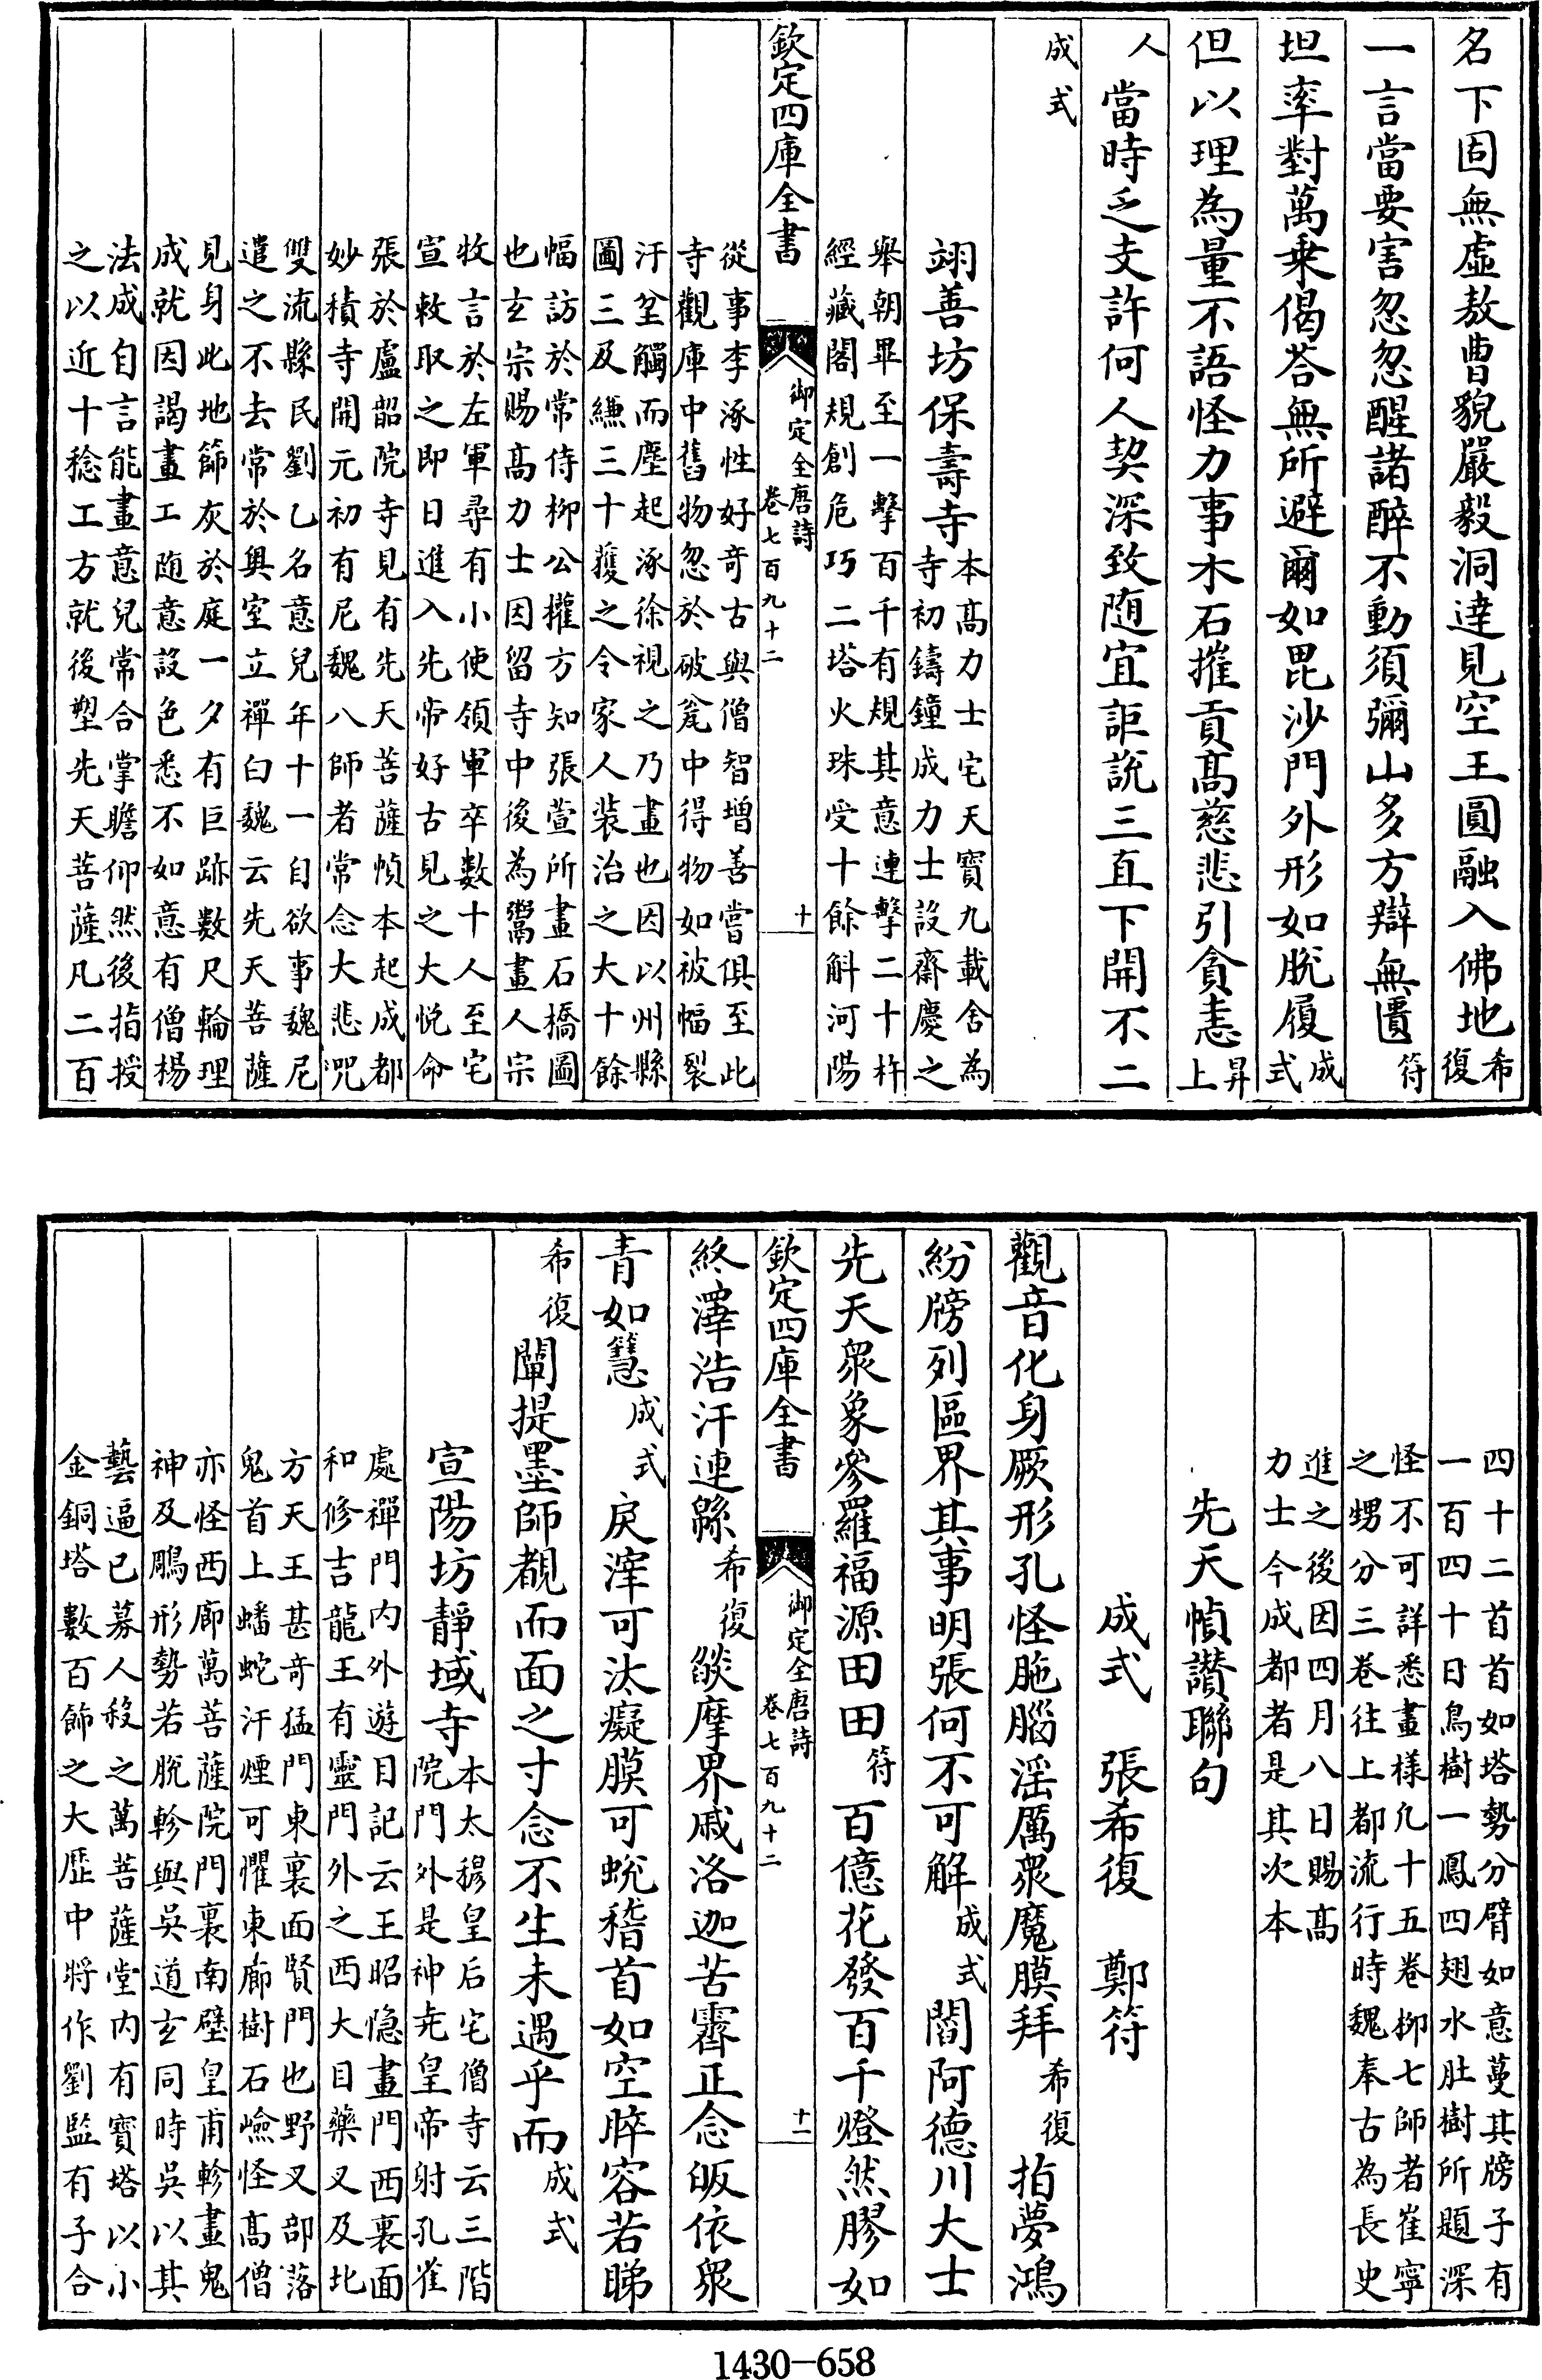 名下固無虛敖曹貌嚴毅洞達見空王圓融入佛地希復
一言當要害忽忽醒諸醉不動須彌山多方辯無匱符
坦率對萬乗偈荅無所避爾如毘沙門外形如脫履成式
但以理為量不語怪力事木石摧貢髙慈悲引貪恚昇上
人當時乏支許何人契深致随宜詎説三直下開不二
成式
翊善坊保壽寺本髙力士宅天寳九載舍為
寺初鑄鐘成力士設齋慶之
舉朝畢至一擊百千有規其意連擊二十杵
經藏閣規創危巧二塔火珠受十餘斛河陽
欽定四庫全書
御定全唐詩
卷七百九十二
十
從事李涿性好竒古與僧智增善嘗俱至此
寺觀庫中舊物忽於破瓮中得物如被幅裂
汙坌觸而塵起涿徐視之乃畫也因以州縣
圖三及縑三十獲之令家人裝治之大十餘
幅訪於常侍柳公權方知張萱所畫石橋圖
也玄宗賜髙力士因留寺中後為鬻畫人宗
牧言於左軍尋有小使領軍卒數十人至宅
宣敕取之即日進入先帝好古見之大悅命
張於盧韶院寺見有先天菩薩幀本起成都
妙積寺開元初有尼魏八師者常念大悲咒
雙流縣民劉乙名意兒年十一自欲事魏尼
遣之不去常於奥室立禪白魏云先天菩薩
見身此地篩灰於庭一夕有巨跡數尺輪理
成就因謁畫工随意設色悉不如意有僧楊
法成自言能畫意兒常合掌瞻仰然後指授
之以近十稔工方就後塑先天菩薩凡二百
四十二首首如塔勢分臂如意蔓其牓子有
一百四十日鳥樹一鳳四翅水肚樹所題深
怪不可詳悉畫様凡十五卷柳七師者崔寧
之甥分三卷往上都流行時魏奉古為長史
進之後因四月八日賜髙
力士今成都者是其次本
先天幀讃聯句
成式　張希復　鄭符
觀音化身厥形孔怪胣腦淫厲衆魔膜拜希復拍夢鴻
紛牓列區界其事明張何不可解成式閻阿德川大士
先天衆象參羅福源田田符百億花發百千燈然膠如
欽定四庫全書
御定全唐詩
卷七百九十二
十一
終澤浩汗連緜希復燄摩界戚洛迦苦霽正念皈依衆
青如慧成式戾滓可汰癡膜可蛻稽首如空睟容若睇
希復闡提墨師覩而面之寸念不生未遇乎而成式
宣陽坊靜域寺本太穆皇后宅僧寺云三階
院門外是神尭皇帝射孔雀
處禪門内外遊目記云王昭隐畫門西裏面
和修吉龍王有靈門外之西大目藥叉及北
方天王甚竒猛門東裏面賢門也野叉部落
鬼首上蟠蛇汗煙可懼東廊樹石嶮怪髙僧
亦怪西廊萬菩薩院門裏南壁皇甫軫畫鬼
神及鵰形勢若脫軫與吳道玄同時吳以其
藝逼已募人殺之萬菩薩堂内有寳塔以小
金銅塔數百飾之大歴中將作劉監有子合
1430-658